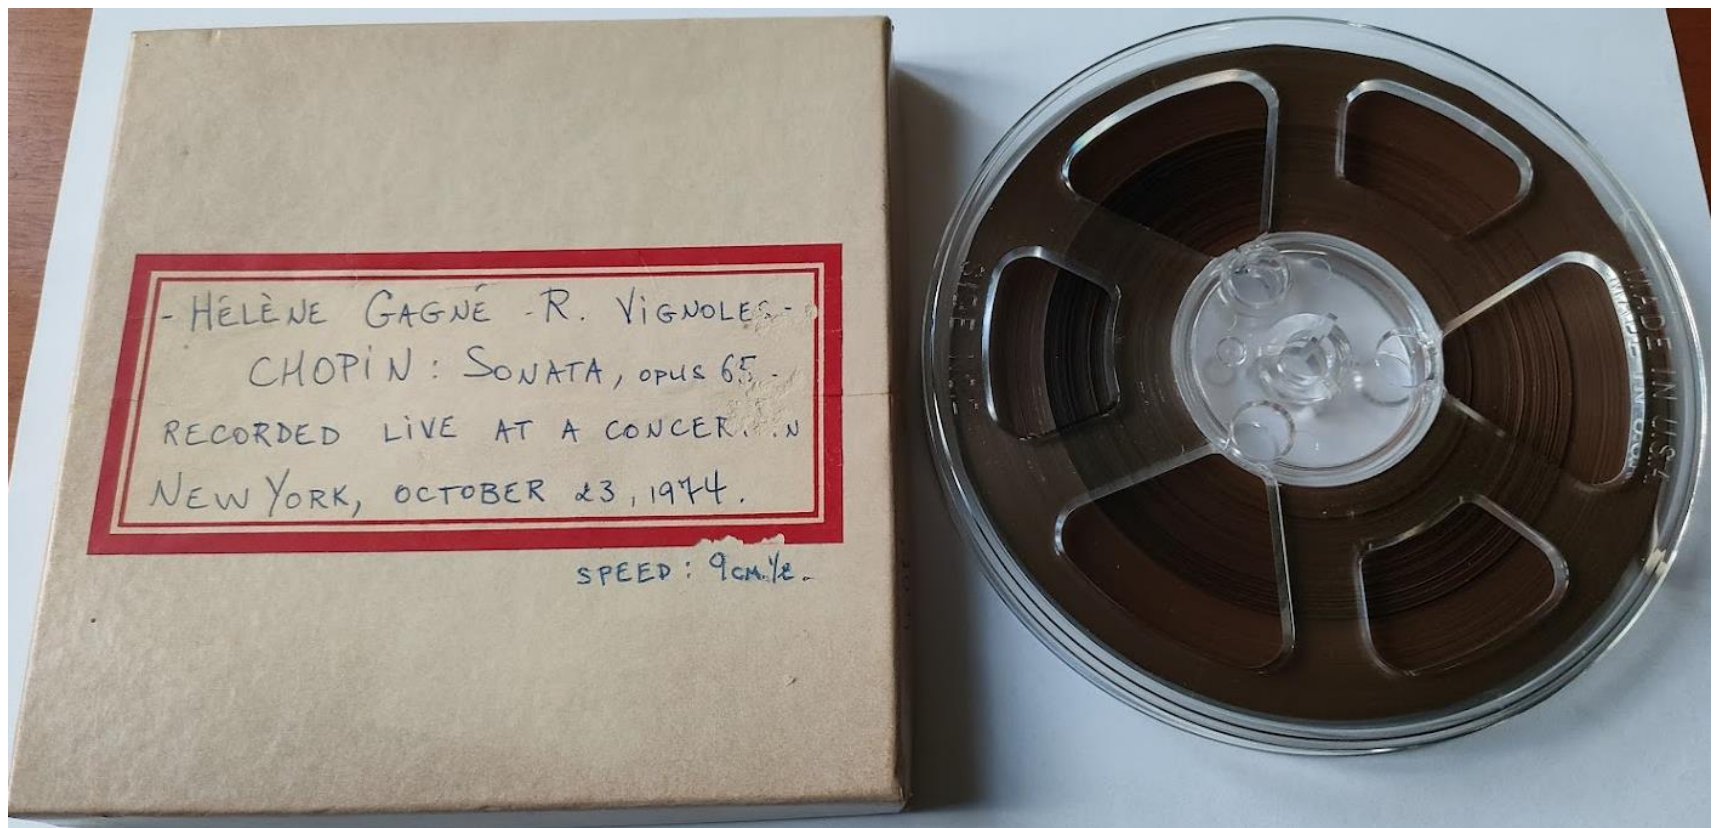 - HÉLÈNE GAGNÉ - R. VIGNOLES -
CHOPIN : SONATA, OPUS 65 -
RECORDED LIVE AT A
NEW YORK, OCTOBER 23, 1974.
SPEED : 9 CM.
SIDE
MADE IN U.S.A.
MADE IN U.S.A.